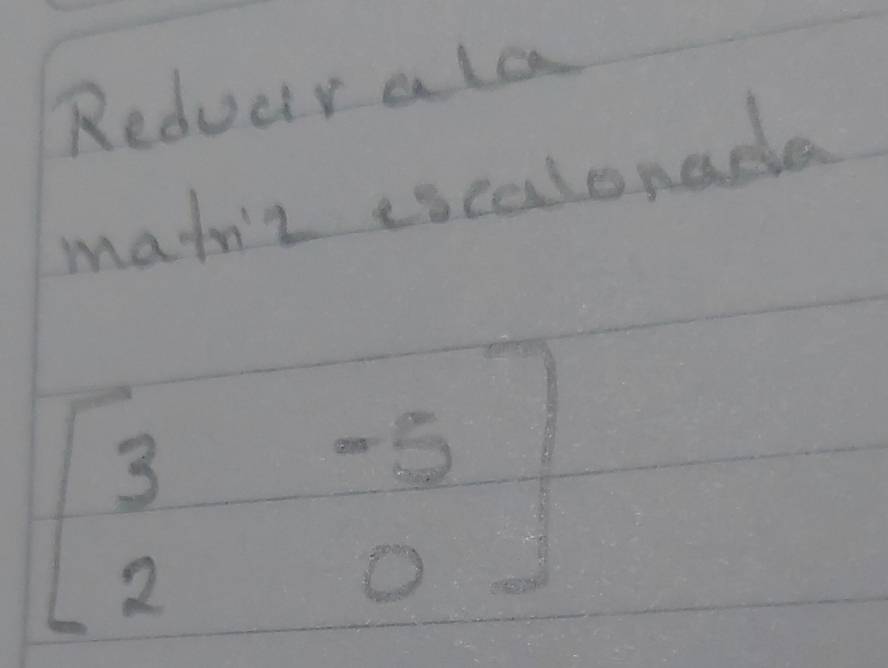 Reducir a la
matriz escalonada
3 -5
2 0